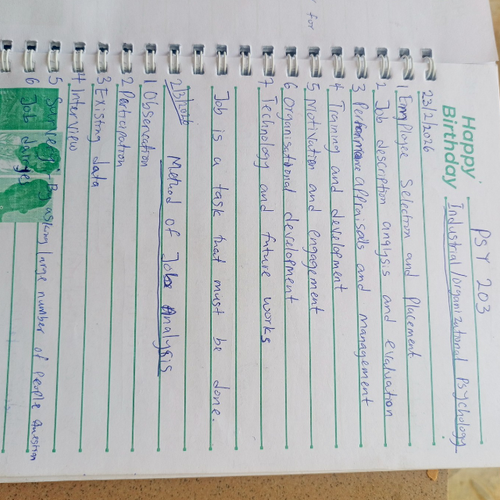 Happy
Birthday
PSY 203
Industrial/organizational Psychology
23/2/2026
1 Employee Selection and placement
2 Job description analysis and evaluation
3 Performance appraisals and management
4 Training and development
5 Motivation and engagement
6 Organisational development
7 Technology and future works
Job is a task that must be done.
Method of Job Analysis
1 Observation
2 Participation
3 Existing data
4 Interview
5 asking large number of people question
6 Job
for